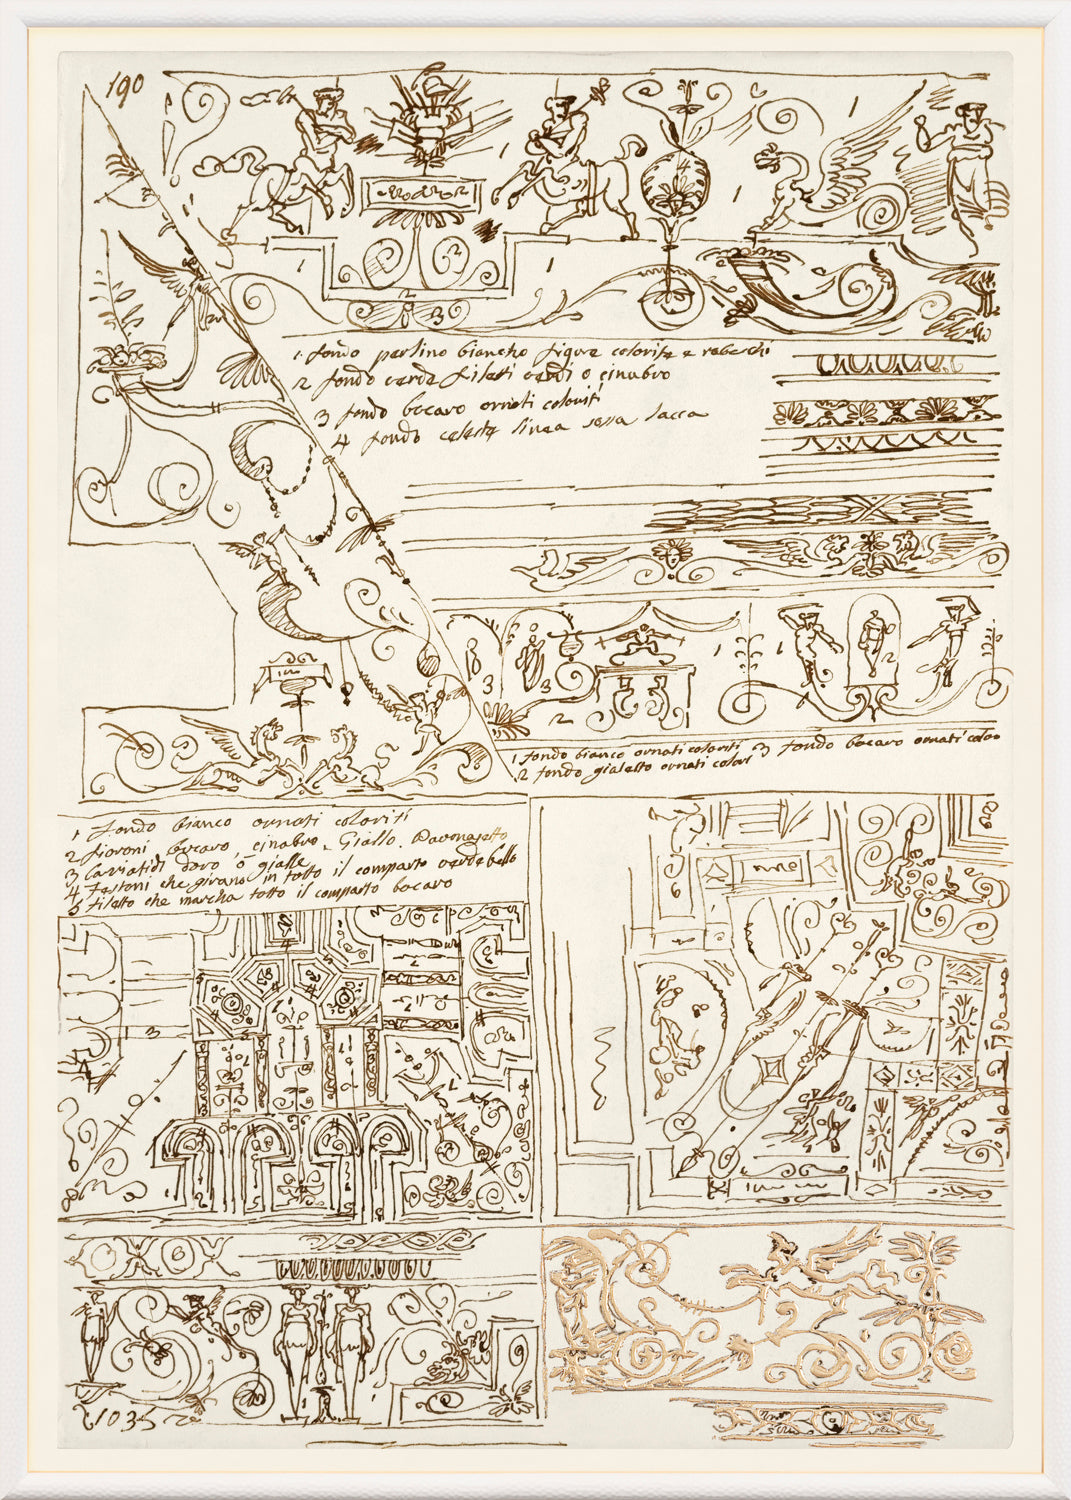 190
1. fondo perlino biancho figure colorite e rabeschi
2 fondo verde filetti verdi o cinabro
3 fondo bocaro ornati coloriti
4 fondo celeste linea rossa lacca
1 fondo bianco ornati coloriti 3 fondo bocaro ornati colo
2 fondo gialetto ornati colori
1 fondo bianco ornati coloriti
2 fioroni bocaro, cinabro, Giallo. Pavonazetto
3 Cariatidi doro o gialle
4 festoni che girano in totto il comparto verde bello
5 filetto che marcha totto il comparto bocaro
1035